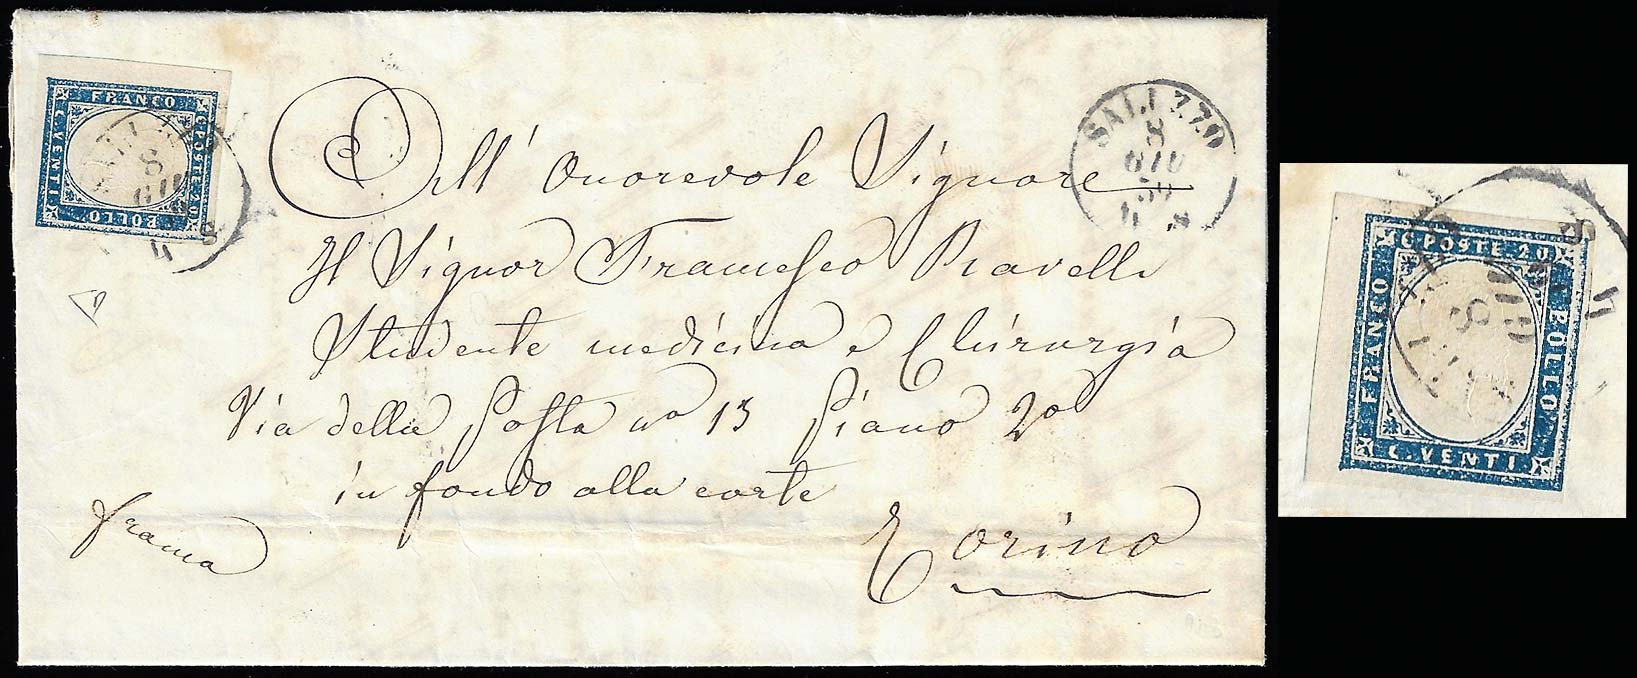 FRANCO
C. POSTE 20
BOLLO
C. VENTI
8
GIU
4 S
SALUZZO
8
GIU
58
4 S
All' Onorevole Signore
Il Signor Francesco Ravelli
Studente medicina e Chirurgia
Via della Posta nº 15 Piano 2º
in fondo alla corte
Torino
franca
C. POSTE 20
FRANCO
BOLLO
C. VENTI
8
GIU
4 S